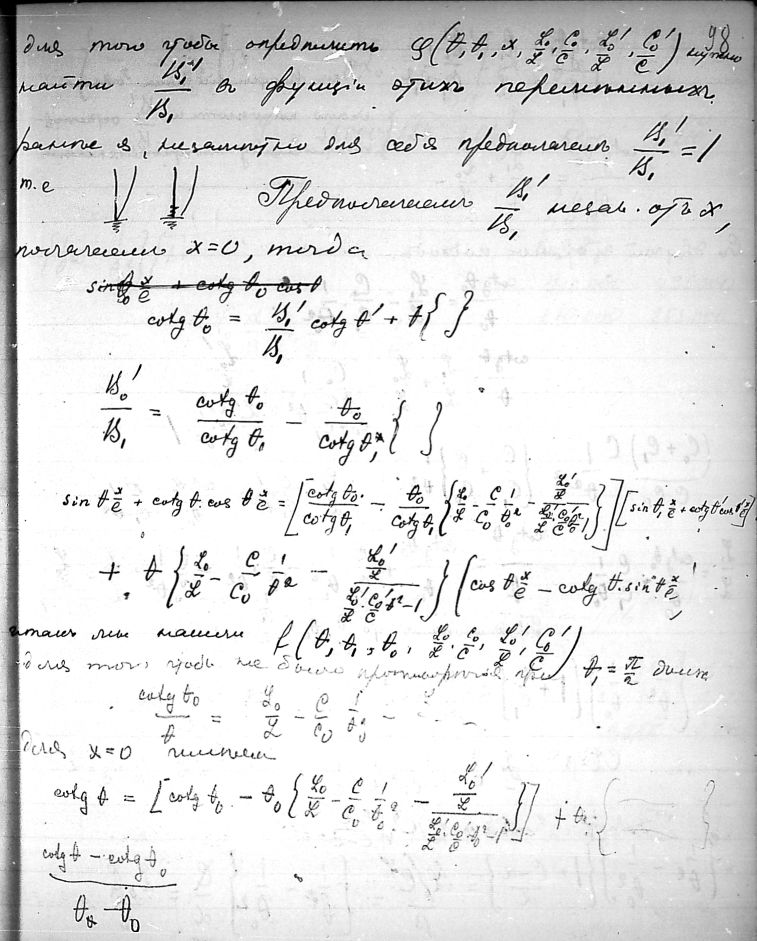 98
для того чтобы определить φ(θ, θ₁, x, 𝓛₀/𝓛, C₀/C, 𝓛₀'/𝓛, C₀'/C) нужно
найти B₁'/B₁ в функціи этихъ переменныхъ.
ранее я, незаметно для себя предполагалъ B₁'/B₁ = 1
т.е Предполагаемъ B₁'/B₁ незав. отъ x,
полагаемъ x=0, тогда
sin θ₀ x/e + cotg θ₀ cos θ
cotg θ₀ = B₁'/B₁ cotg θ' + θ { }
B₀'/B₁ = cotg θ₀/cotg θ₁ − θ₀/cotg θ₁ { }
sin θ x/e + cotg θ cos θ x/e = [cotg θ₀/cotg θ₁ − θ₀/cotg θ₁ {𝓛₀/𝓛 − C/C₀ 1/θ₀² − (𝓛₀'/𝓛)/(𝓛₀'/𝓛 · C₀'/C θ₀² − 1)}] [sin θ₁ x/e + cotg θ' cos θ' x/e]
+ θ {𝓛₀/𝓛 − C/C₀ 1/θ² − (𝓛₀'/𝓛)/(𝓛₀'/𝓛 · C₀'/C θ² − 1)} (cos θ x/e − cotg θ · sin θ x/e)
итакъ мы нашли f(θ, θ₁, θ₀, 𝓛₀/𝓛, C₀/C, 𝓛₀'/𝓛, C₀'/C)
для того чтобъ не было противоречія при θ₁ = π/2 должн
cotg θ₀/θ = 𝓛₀/𝓛 − C/C₀ 1/θ₀² − . . .
для x=0 имеемъ
cotg θ = [cotg θ₀ − θ₀ {𝓛₀/𝓛 − C/C₀ · 1/θ₀² − (𝓛₀'/𝓛)/(𝓛₀'/𝓛 · C₀'/C θ₀² − 1)}] + θ { }
(cotg θ − cotg θ₀)/(θ − θ₀)